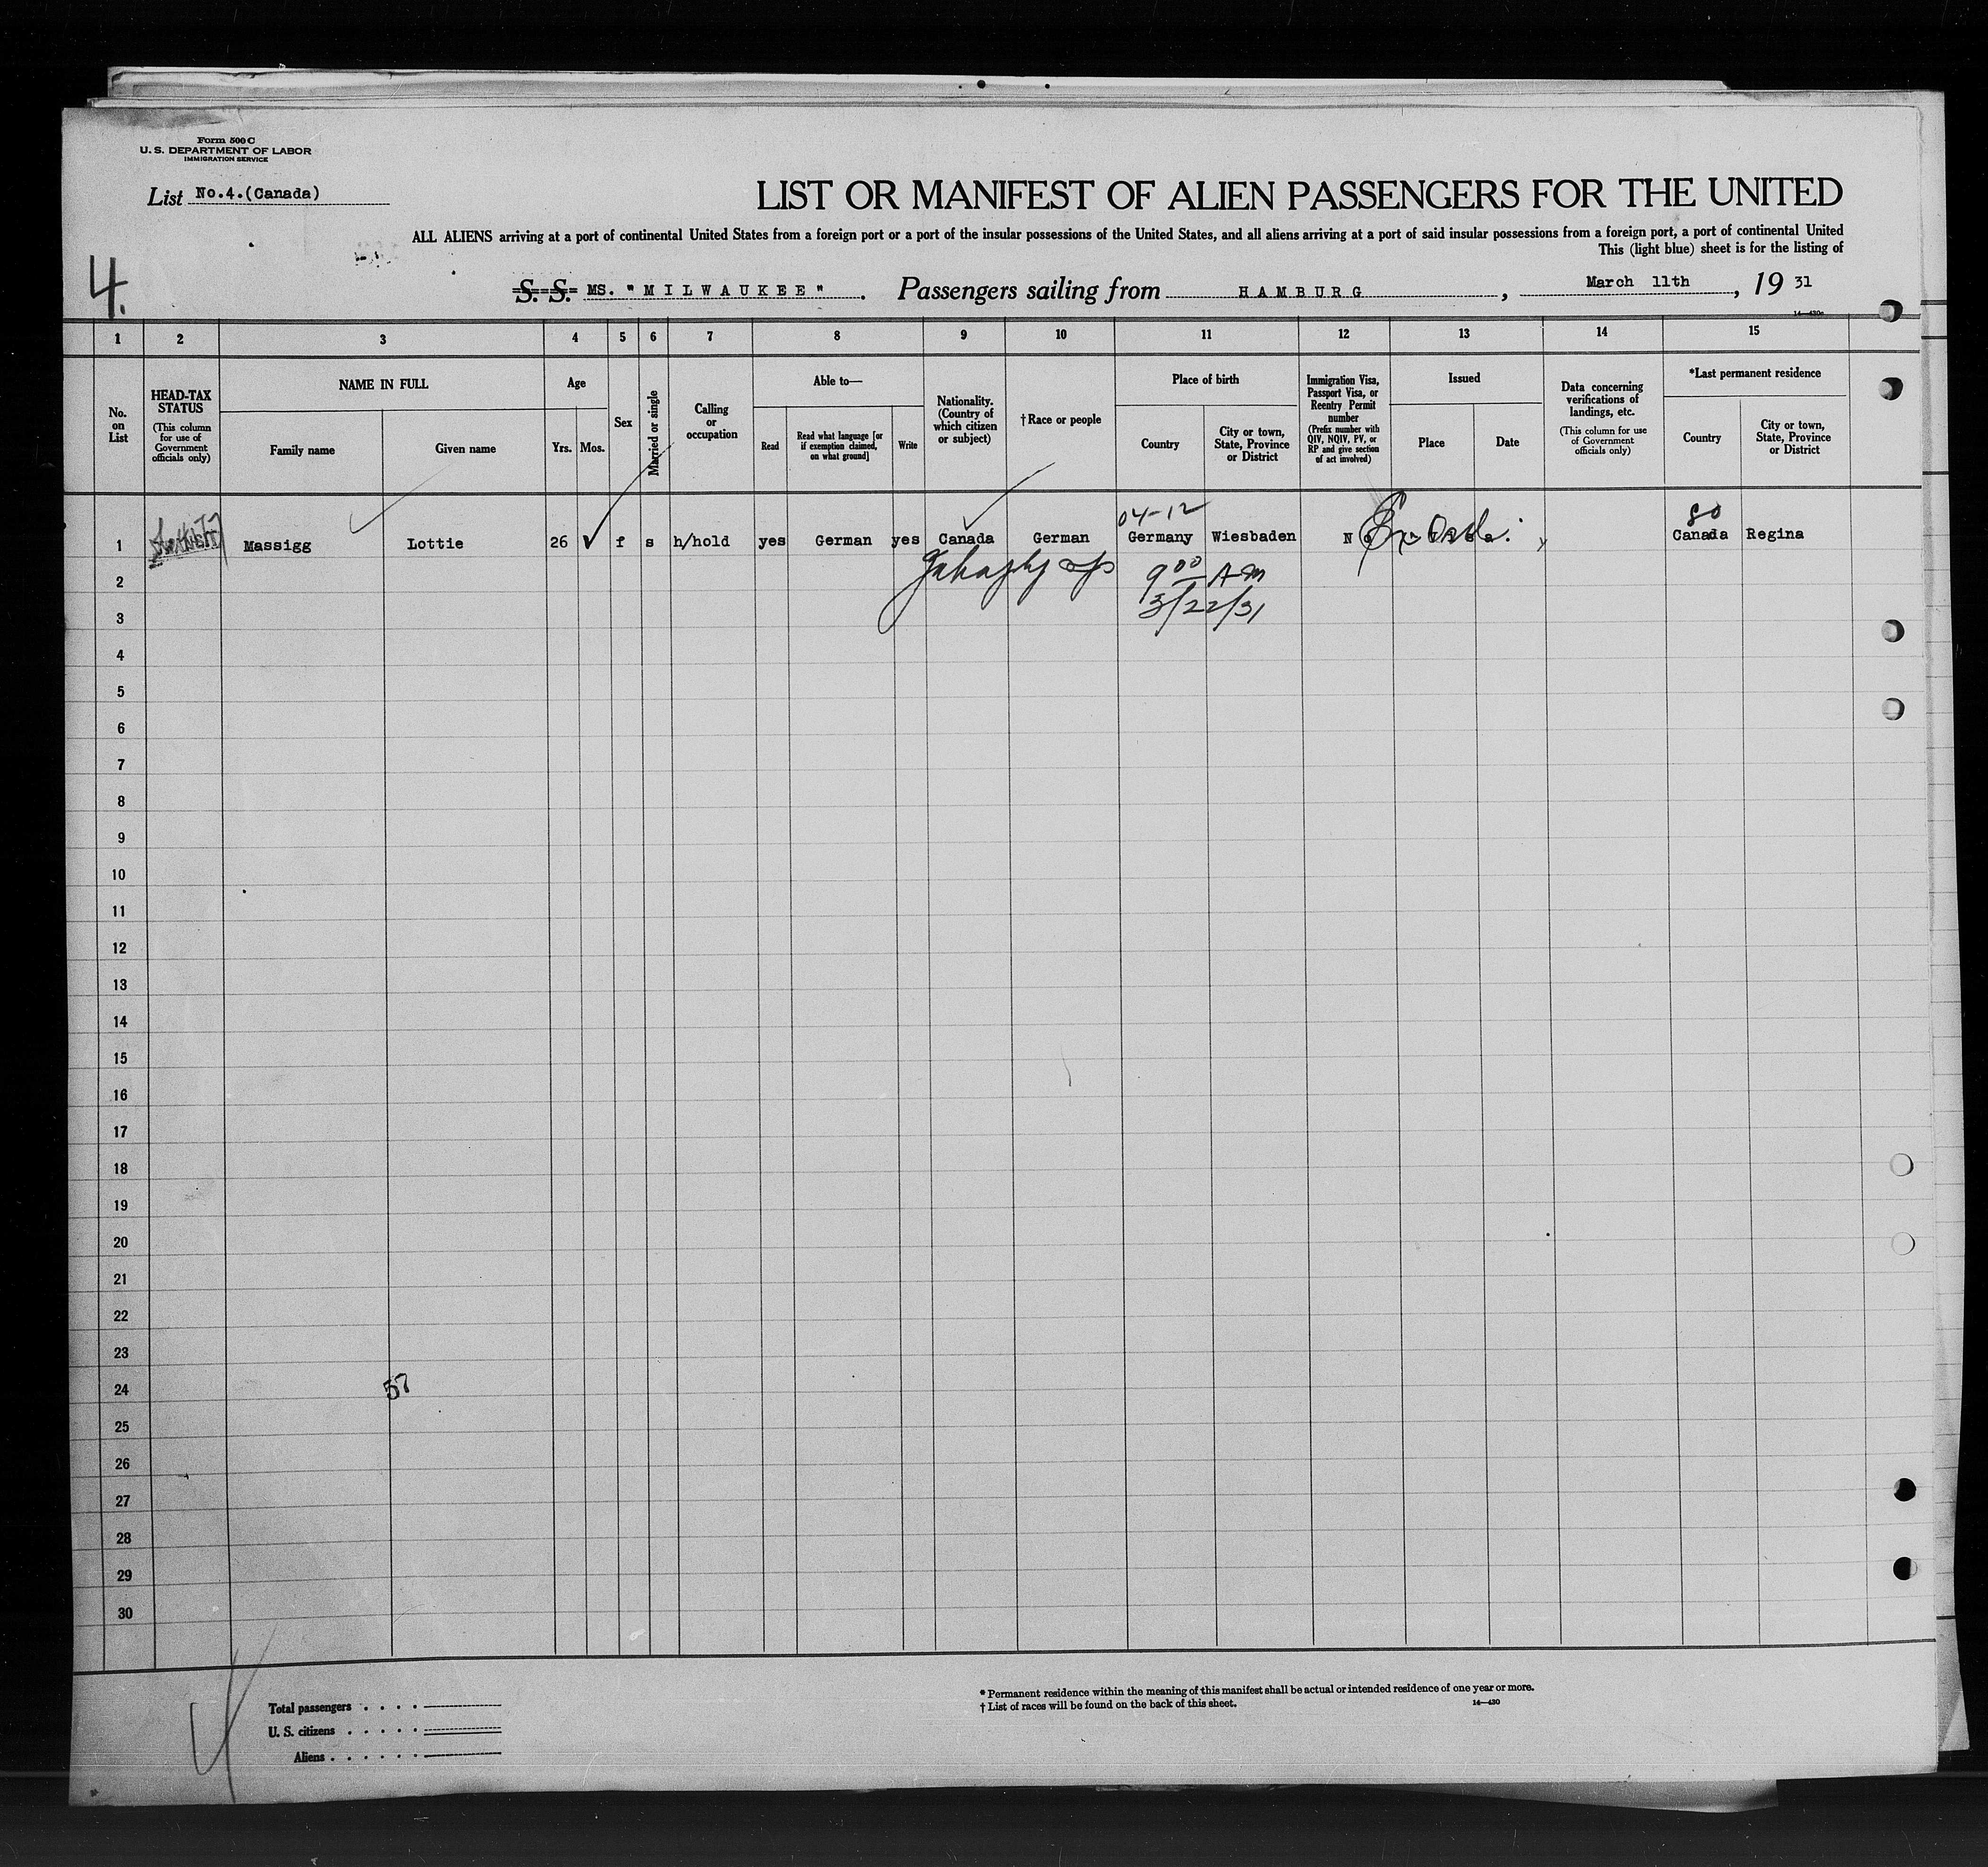 Form 500 C
U. S. DEPARTMENT OF LABOR
IMMIGRATION SERVICE
List No.4.(Canada)
LIST OR MANIFEST OF ALIEN PASSENGERS FOR THE UNITED
ALL ALIENS arriving at a port of continental United States from a foreign port or a port of the insular possessions of the United States, and all aliens arriving at a port of said insular possessions from a foreign port, a port of continental United
This (light blue) sheet is for the listing of
4.
S. S. MS. "MILWAUKEE". Passengers sailing from HAMBURG, March 11th, 19 31
14—430a
1 2 3 4 5 6 7 8 9 10 11 12 13 14 15
No. on List
HEAD-TAX STATUS
(This column for use of Government officials only)
NAME IN FULL
Family name
Given name
Age
Yrs. Mos.
Sex
Married or single
Calling or occupation
Able to—
Read
Read what language [or if exemption claimed, on what ground]
Write
Nationality. (Country of which citizen or subject)
† Race or people
Place of birth
Country
City or town, State, Province or District
Immigration Visa, Passport Visa, or Reentry Permit number
(Prefix number with QIV, NQIV, PV, or RP and give section of act involved)
Issued
Place
Date
Data concerning verifications of landings, etc.
(This column for use of Government officials only)
*Last permanent residence
Country
City or town, State, Province or District
04-12
80
1 Massigg Lottie 26 f s h/hold yes German yes Canada German Germany Wiesbaden Canada Regina
2 9 00 AM
3 3/22/31
4
5
6
7
8
9
10
11
12
13
14
15
16
17
18
19
20
21
22
23
24 57
25
26
27
28
29
30
Total passengers . . . .
U. S. citizens . . . . .
Aliens . . . . . .
* Permanent residence within the meaning of this manifest shall be actual or intended residence of one year or more.
† List of races will be found on the back of this sheet.
14—430